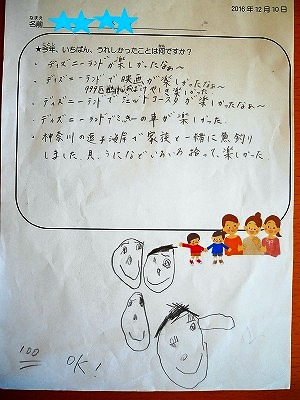 なまえ
名前
2016年12月10日
★今年、いちばん、うれしかったことは何ですか？
・ディズニーランドが楽しかったなぁ〜
・ディズニーランドで映画が楽しかったなぁ〜
999匹
やしき楽しかった
・ディズニーランドでジェットコースタが楽しかったなぁ〜
・ディズニーランドでミッキーの車が楽しかった.
・神奈川の逗子海岸で家族と一緒に魚釣り
しました.貝、うになどいろいろ拾って、楽しかった.
100
OK!